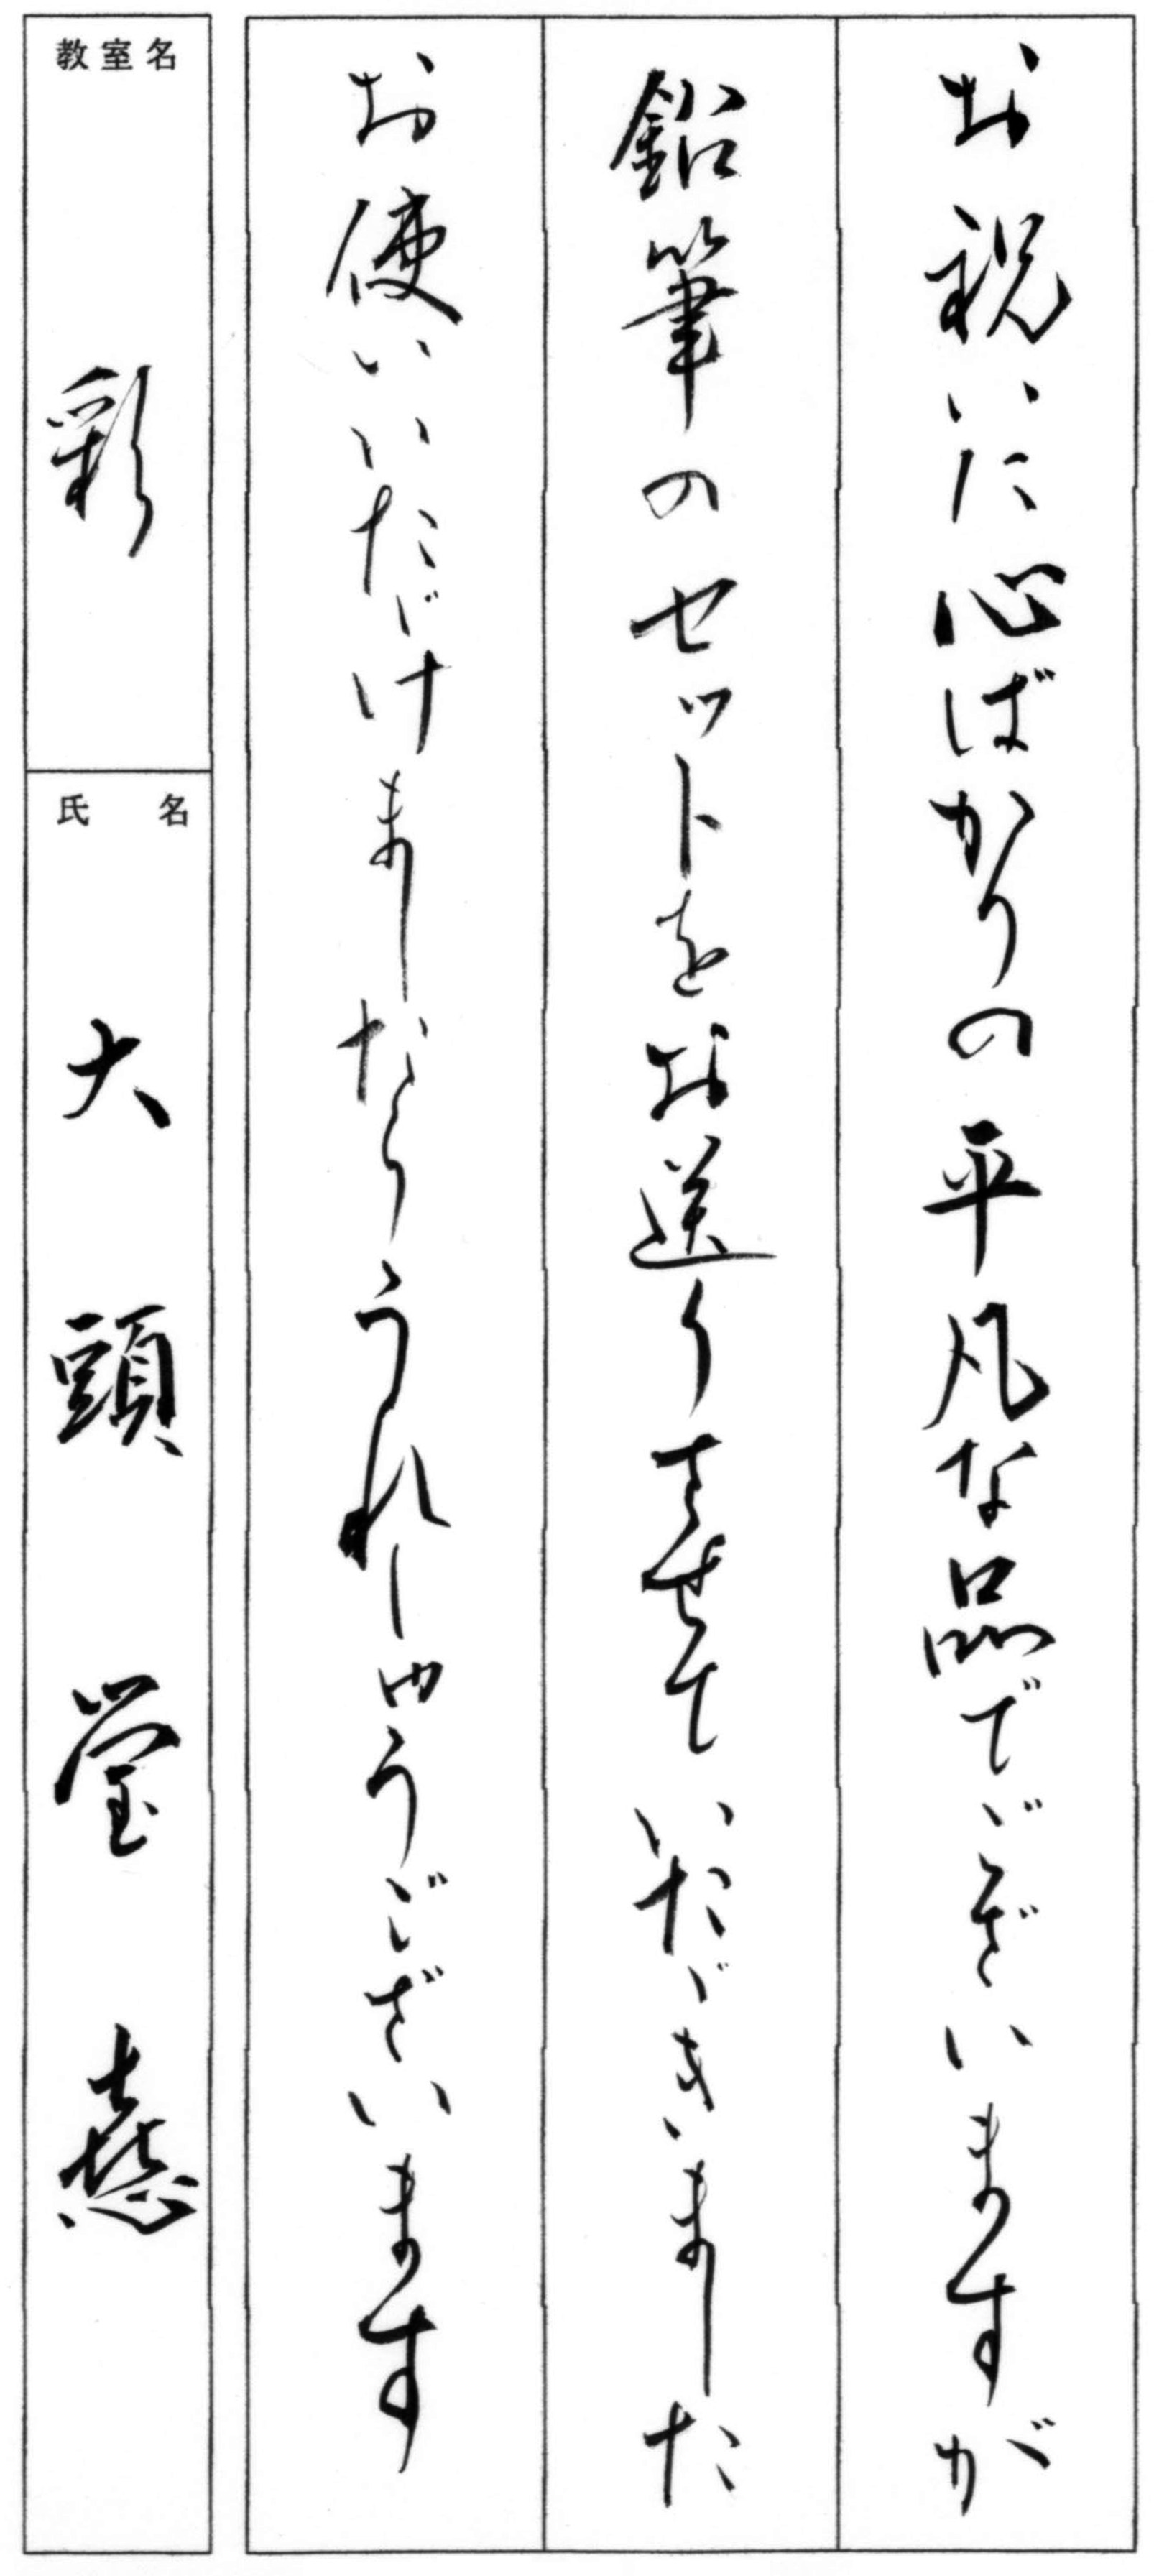 お祝いに心ばかりの平凡な品でございますが
鉛筆のセットをお送りさせていたゞきました
お使いいたゞけましたらうれしゅうございます
教室名
彩
氏名
大頭瑩憙